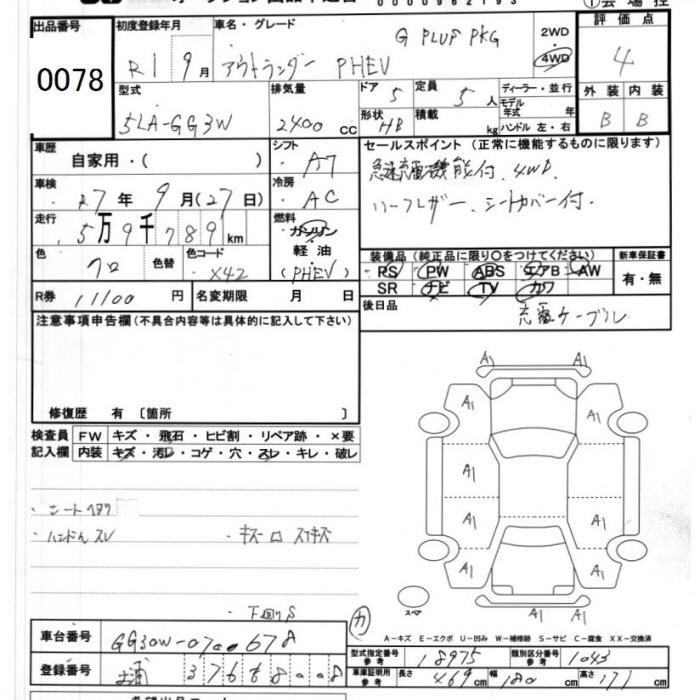 0000962193
出品番号 初度登録年月 車名・グレード G PLUS PKG 2WD 評価点
0078 R1 9月 アウトランダー PHEV 4WD 4
型式 排気量 ドア 定員 ディーラー・並行 外装 内装
5LA-GG3W 2400 CC 5 5人 モデル年式 年 B B
形状 HB 積載 kg ハンドル 左・右
車歴 自家用・( ) シフト A7 セールスポイント(正常に機能するものに限ります)
車検 R7年9月(27日) 冷房 AC 急速充電機能付、4WD
走行 5万9千789km 燃料 ガソリン ハーフレザー、シートカバー付.
軽油
色 クロ 色替 色コード X42 (PHEV)
装備品(純正品に限り○をつけてください) 新車保証書
PS PW ABS エアB AW 有・無
SR ナビ TV カワ
R券 11100円 名変期限 月 日
後日品 充電ケーブル
注意事項申告欄(不具合内容等は具体的に記入して下さい)
修復歴 有 [箇所 ]
検査員記入欄 FW キズ・飛石・ヒビ割・リペア跡・×要
内装 キズ・汚レ・コゲ・穴・スレ・キレ・破レ
A1 A1
A1 A1
A1
A1 A1
A1 A1
A1 A1
・シートヘタリ
・ハンドルスレ ・キズ
スペア
下回りS
カ
A-キズ E-エクボ U-凹み W-補修跡 S-サビ C-腐食 XX-交換済
車台番号
型式指定番号参考 18975 類別区分番号参考 1043
登録番号
車庫証明用参考 長さ 469cm 幅 180cm 高さ 171cm